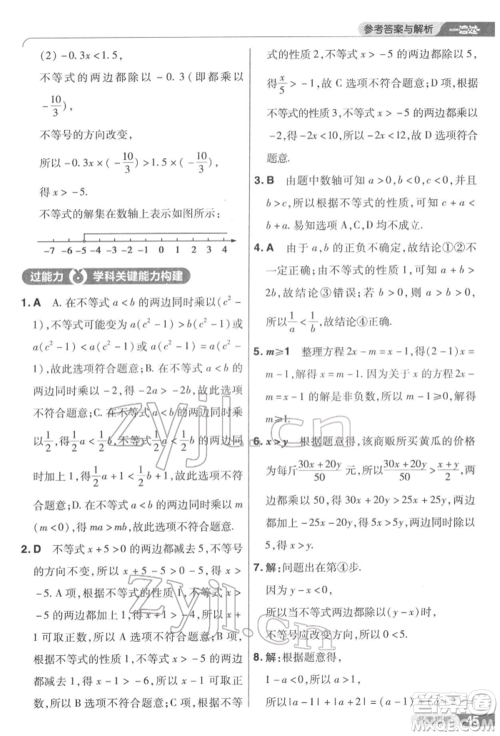 参考答案与解析
一遍过
(2) －0.3x＜1.5,
不等式的两边都除以－0.3(即都乘
－10/3),
不等号的方向改变,
所以－0.3x×(－10/3)＞1.5×(－10/3),
所以x＞－5.
不等式的解集在数轴上表示如图所示:
－7 －6 －5 －4 －3 －2 －1 0 1 2 3 4
过能力 学科关键能力构建
1. A A. 在不等式a＜b的两边同时乘以(c²－
1),不等式可能变为a(c²－1)＞b(c²－1)或
a(c²－1)＜b(c²－1)或a(c²－1)＝b(c²－
1),故此选项符合题意;B. 在不等式a＜b的
两边同时乘以－2,得－2a＞－2b,故此选项
不符合题意;C. 在不等式a＜b的两边同时乘
以1/2,得1/2a＜1/2b,不等式1/2a＜1/2b的两边同
时加上1,得1/2a＋1＜1/2b＋1,故此选项不符
合题意;D. 在不等式a＜b的两边同时乘以m
(m＜0),得ma＞mb,故此选项不符合题意.
2. D 不等式x＋5＞0的两边都减去5,不等号
的方向不变,所以x＋5－5＞0－5,所以x＞
－5,所以根据不等式的性质1,不等式x＞
－5的两边都减去1,得x－1＞－6,所以x－
1可取负数,所以A选项不符合题意;根据不
等式的性质1,不等式x＞－5的两边都加上
1,得x＋1＞－4,所以x＋1可取正数,所以B
选项不符合题意;根据不等式的性质2,不等
式的两边都除以5,不等式x＞－5可变形为
x/5＞－1,故C选项不符合题意;根据不等式
的性质3,不等式x＞－5的两边都乘以－2,
得－2x＜10,所以－2x＜12,故D选项符合
题意.
3. B 由题中数轴可知a＞0,b＜0,c＜0,且
b＞c,所以a＋b＞b＋c,ac＜bc,ab＜0,b＋
c＜a. 易知A、C、D均不成立.
4. A 由于a,b的正负不确定,故结论①②不
一定成立;因为c²≥0,所以ac²≥bc²,故结
论③错误;若a＞b＞0,则ab＞0,所以
1/a＜1/b,故结论④成立.
5. m≥1 整理方程2x－m＝x－1,得x－2x＝
－m＋1,解得x＝m－1. 因为关于x的方程
2x－m＝x－1的解是非负数,所以m－1≥0,解得
m≥1.
6. x＞y 根据题意得,该商贩所买黄瓜的价格
为每斤(30x＋20y)/50元,所以(30x＋20y)/50＞(x＋y)/2,解
得x＞y.
7. 解:问题出在第④步.
因为x＞y,
所以y－x＜0.
所以当不等式两边同时都除以(y－x)时,
不等号应改变方向,所以0＜5.
8. 解:根据题意得,
1－a＜0,所以a＞1,
所以|a－1|＋|a＋2|＝a－1＋a＋2＝
45
zyjl.cn
答案圈